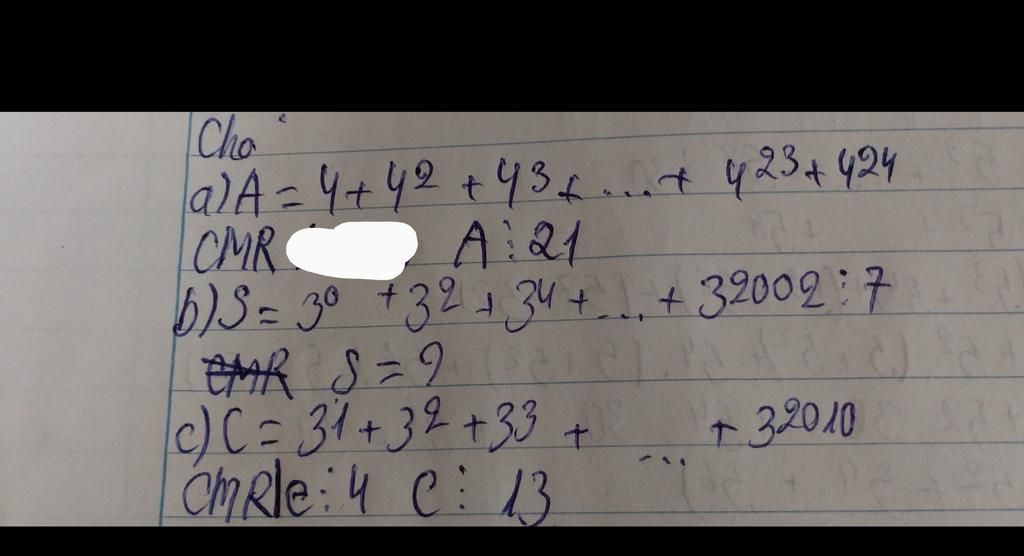 Cho
a) A = 4 + 4² + 4³ + ... + 4²³ + 4²⁴
CMR A ⋮ 21
b) S = 3⁰ + 3² + 3⁴ + ... + 3²⁰⁰² ⋮ 7
CMR S = ?
c) C = 3¹ + 3² + 3³ + ... + 3²⁰¹⁰
CMR C ⋮ 4 C ⋮ 13